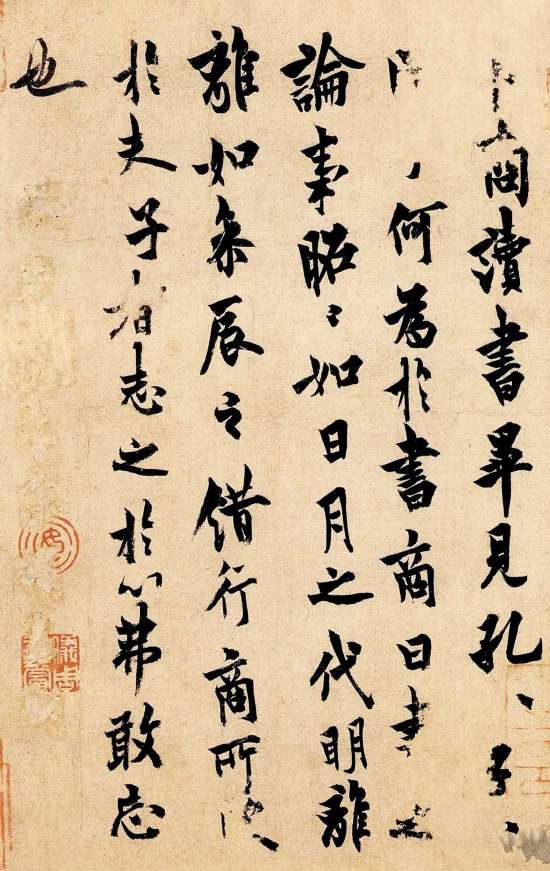 卜商讀書畢見孔〻子〻
問何為於書商曰書之
論事昭〻如日月之代明離
離如參辰之錯行商所受
於夫子者志之於心弗敢忘
也